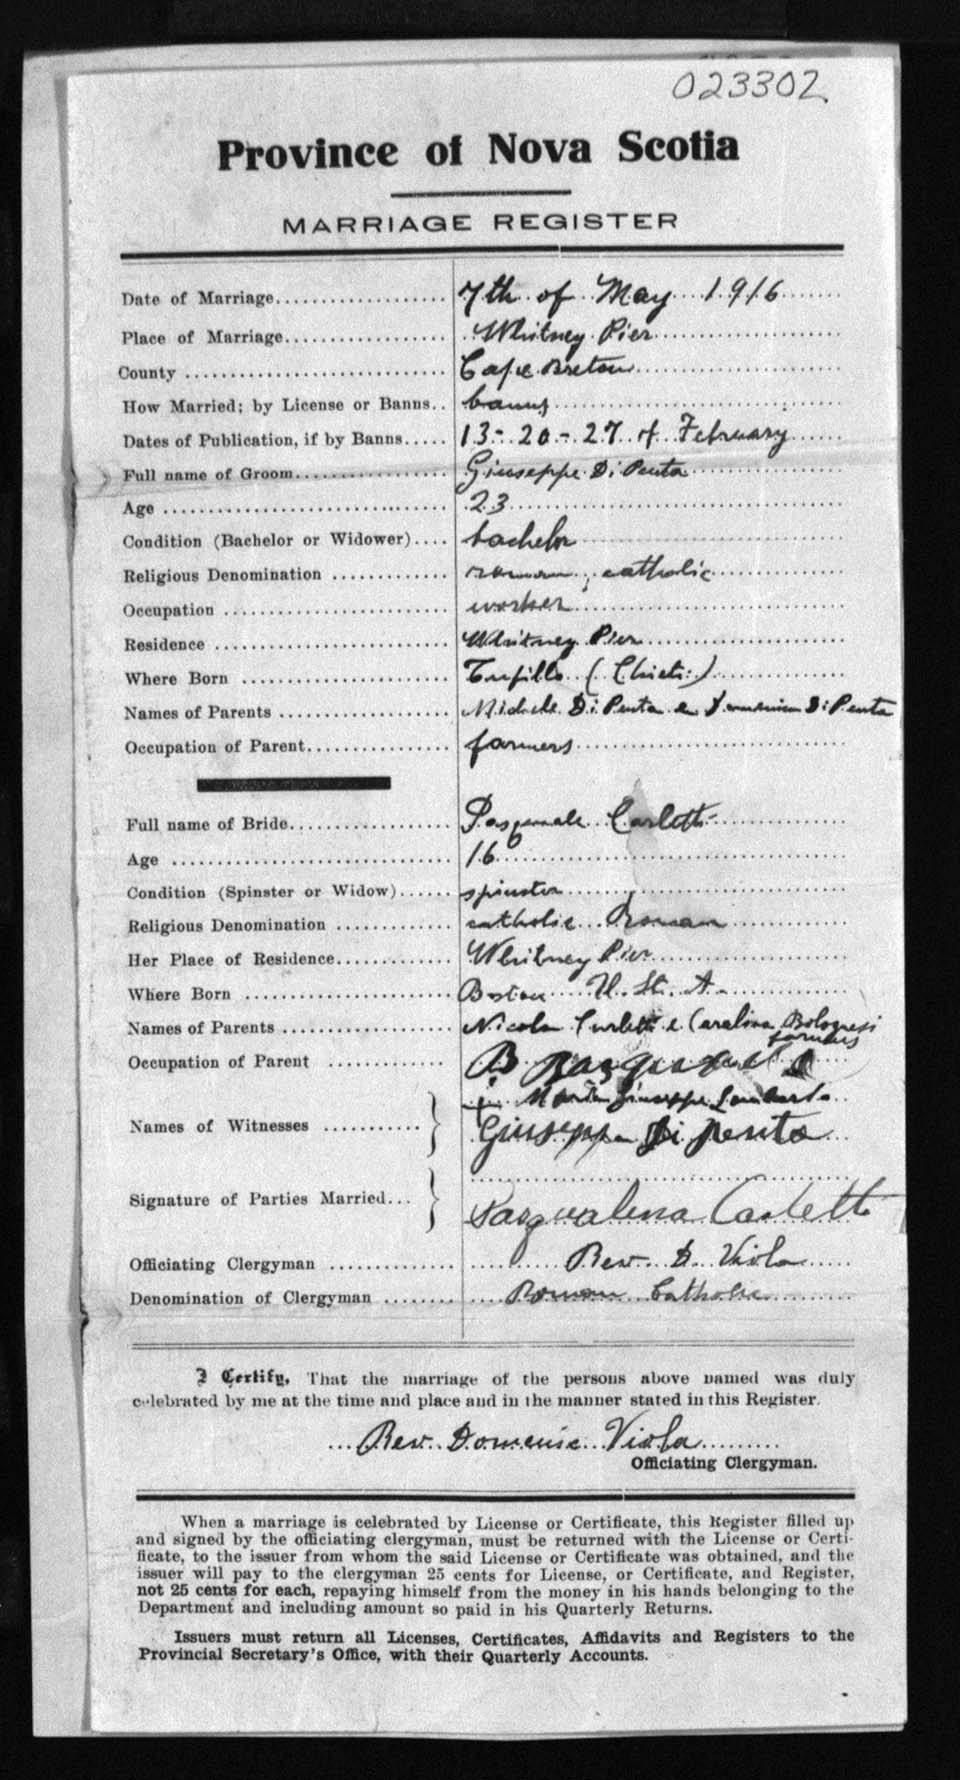 023302
Province of Nova Scotia
MARRIAGE REGISTER
Date of Marriage 7th of May 1916
Place of Marriage Whitney Pier
County Cape Breton
How Married; by License or Banns banns
Dates of Publication, if by Banns 13-20-27 of February
Full name of Groom Giuseppe Di Penta
Age 23
Condition (Bachelor or Widower) bachelor
Religious Denomination roman catholic
Occupation worker
Residence Whitney Pier
Where Born (Chieti)
Names of Parents Michele Di Penta e Di Penta
Occupation of Parent farmers
Full name of Bride Pasquale Carletti
Age 16
Condition (Spinster or Widow) spinster
Religious Denomination catholic Roman
Her Place of Residence Whitney Pier
Where Born Boston U. St. A.
Names of Parents Nicola Curletti e Carolina Bolognesi
farmers
Occupation of Parent
Names of Witnesses Giuseppe
Giuseppe Di Penta
Signature of Parties Married
Pasqualena Carletti
Officiating Clergyman Rev. D. Viola
Denomination of Clergyman Roman Catholic
I Certify, That the marriage of the persons above named was duly
celebrated by me at the time and place and in the manner stated in this Register.
Rev. Domenic Viola
Officiating Clergyman.
When a marriage is celebrated by License or Certificate, this Register filled up
and signed by the officiating clergyman, must be returned with the License or Certi-
ficate, to the issuer from whom the said License or Certificate was obtained, and the
issuer will pay to the clergyman 25 cents for License, or Certificate, and Register,
not 25 cents for each, repaying himself from the money in his hands belonging to the
Department and including amount so paid in his Quarterly Returns.
Issuers must return all Licenses, Certificates, Affidavits and Registers to the
Provincial Secretary's Office, with their Quarterly Accounts.